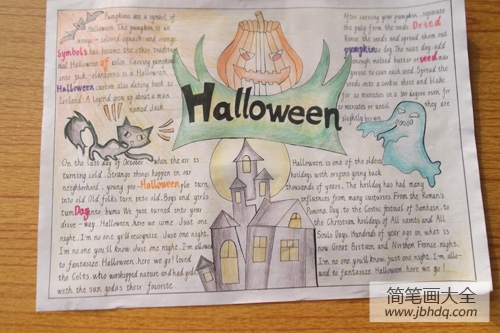 Pumpkins are a symbol of
Halloween. The pumpkin is an
orange-colored squash, and orange
Symbols has become the other tradition
nal Halloween of color. Carving pumpkins
into jack-olanterns is a Halloween
Halloween custom also dating back to
Ireland. A legend grew up about a man
named Jack
After carving your pumpkin, separate
the pulp from the seeds Dried
Rinse the seeds and spread them out
pumpkin to dry. The next day, add
enough melted butter or seed mar
garine to coat each seed. Spread the
seeds onto a cookie sheet and bake
for 20 minutes in a 300 degree oven for
minutes or until they are
slightly brown.
Halloween
On the last day of October when the air is
turning cold. Strange things happen in our
neighborhood, young peo-Halloween ple turn
into old Old folks turn into old. Boys and girls
turn Day into bums We just turned into your
drive-way. Halloween here we come Just one
night. I'm no one you'll recognize. Just one
night. I'm no one you'll know Just one night. I'm allowed
to fantasize Halloween, here we go! loved
the Celts, who worshipped nature and had gods
with the sun gods there favorite.
Halloween is one of the oldest
holidays with origins going back
thousands of years. The holiday has had many
influences from many cultures From the Roman's
Pomona Day to the Celtic festival of Samhain, to
the Christian holidays of All saints and All
Souls Days. Hundreds of year ago in what is
now Great Britain and Northen France. Night.
I'm no one you'll know, just one night. I'm allo-
wed to fantasize Halloween, here we go!
简笔画大全
www.jbhdq.com